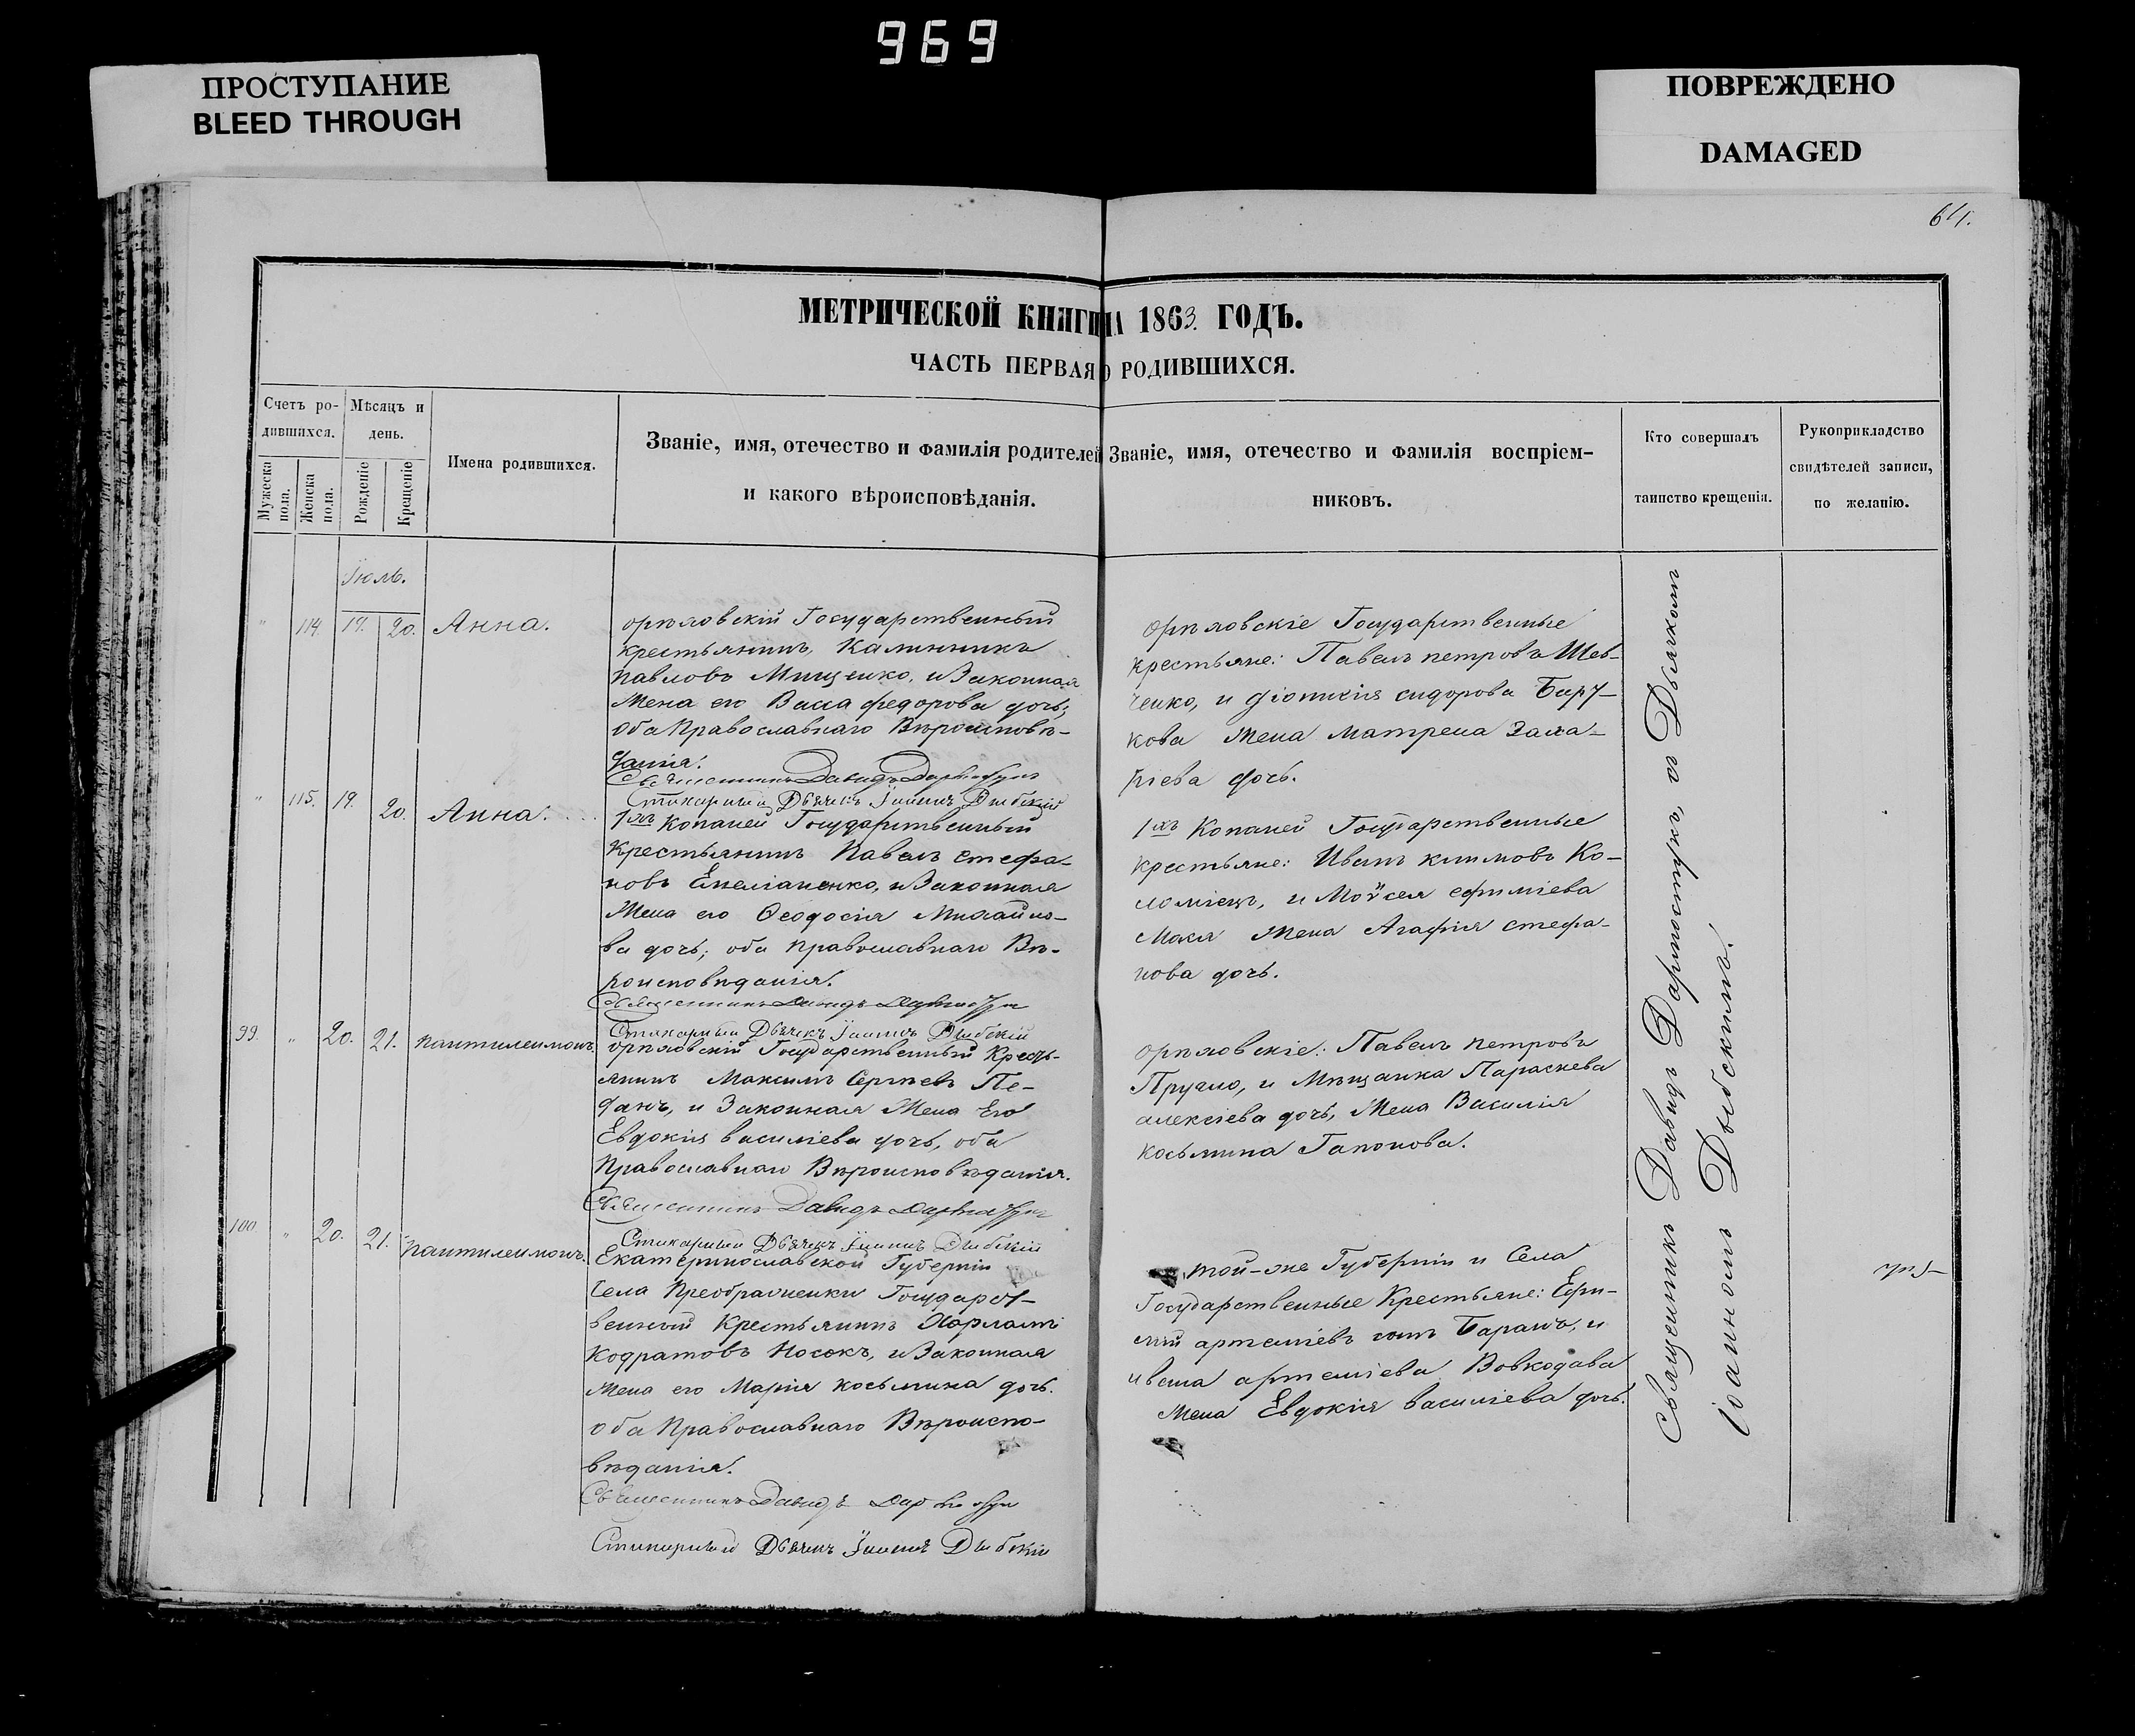 969
ПРОСТУПАНИЕ
BLEED THROUGH
ПОВРЕЖДЕНО
DAMAGED
64.
МЕТРИЧЕСКОЙ КНИГИ НА 1863. ГОДЪ.
ЧАСТЬ ПЕРВАЯ О РОДИВШИХСЯ.
Счетъ ро-
дившихся.
Мужеска
пола.
Женска
пола.
Мѣсяцъ и
день.
Рожденіе
Крещеніе
Имена родившихся.
Званіе, имя, отечество и фамилія родителей
и какого вѣроисповѣданія.
Званіе, имя, отечество и фамилія воспріем-
никовъ.
Кто совершалъ
таинство крещенія.
Рукоприкладство
свидѣтелей записи,
по желанію.
Іюль.
" 114. 17. 20. Анна.
орѣховскій Государственный
крестьянинъ, Калинникъ
павловъ Мищенко, и Законная
Жена его Васса федорова дочь;
оба Православнаго Вѣроисповѣ-
данія.
Священникъ Давидъ
Стихарный Дьячекъ Іоаннъ Дыбскій
орѣховскіе Государственные
крестьяне: Павелъ петровъ Шев-
ченко, и діонисія сидорова
кова жена матрена Заха-
ріева дочь.
" 115. 19. 20. Анна.
1хъ Копаней Государственный
Крестьянинъ Павелъ стефа-
новъ Емеліаненко, и Законная
Жена его Ѳеодосія Михайло-
ва дочь; оба православнаго Вѣ-
роисповѣданія.
Священникъ Давидъ
Стихарный Дьячекъ Іоаннъ Дыбскій
1хъ Копаней Государственные
крестьяне: Иванъ климовъ Ко-
ломіецъ, и Моѵсея ефиміева
Мася жена Агафія стефа-
нова дочь.
99. " 20. 21. пантилеимонъ.
орѣховскій Государственный Кресть-
янинъ Максимъ Сергѣевъ Пе-
данъ, и Законная Жена Его
Евдокія василіева дочь, оба
Православнаго Вѣроисповѣданія.
Священникъ Давидъ
Стихарный Дьячекъ Іоаннъ Дыбскій
орѣховскіе: Павелъ петровъ
и Мѣщанка Параскева
алексіева дочь, жена Василія
косьмина Гапонова.
100 " 20. 21. пантилеимонъ.
Екатеринославской Губерніи
Села Преображенки Государст-
венный Крестьянинъ Харлампъ
Кодратовъ Носокъ, и Законная
Жена его Марія косьмина дочь.
оба Православнаго Вѣроиспо-
вѣданія.
Священникъ Давидъ
Стихарный Дьячекъ Іоаннъ Дыбскій
той-же Губерніи и Села
Государственные Крестьяне:
артеміевъ сынъ Баранъ, и
ивана артеміева Вовкодава
жена Евдокія василіева дочь.
Священникъ Давидъ съ Дьячкомъ
Іоанномъ Дыбскимъ.